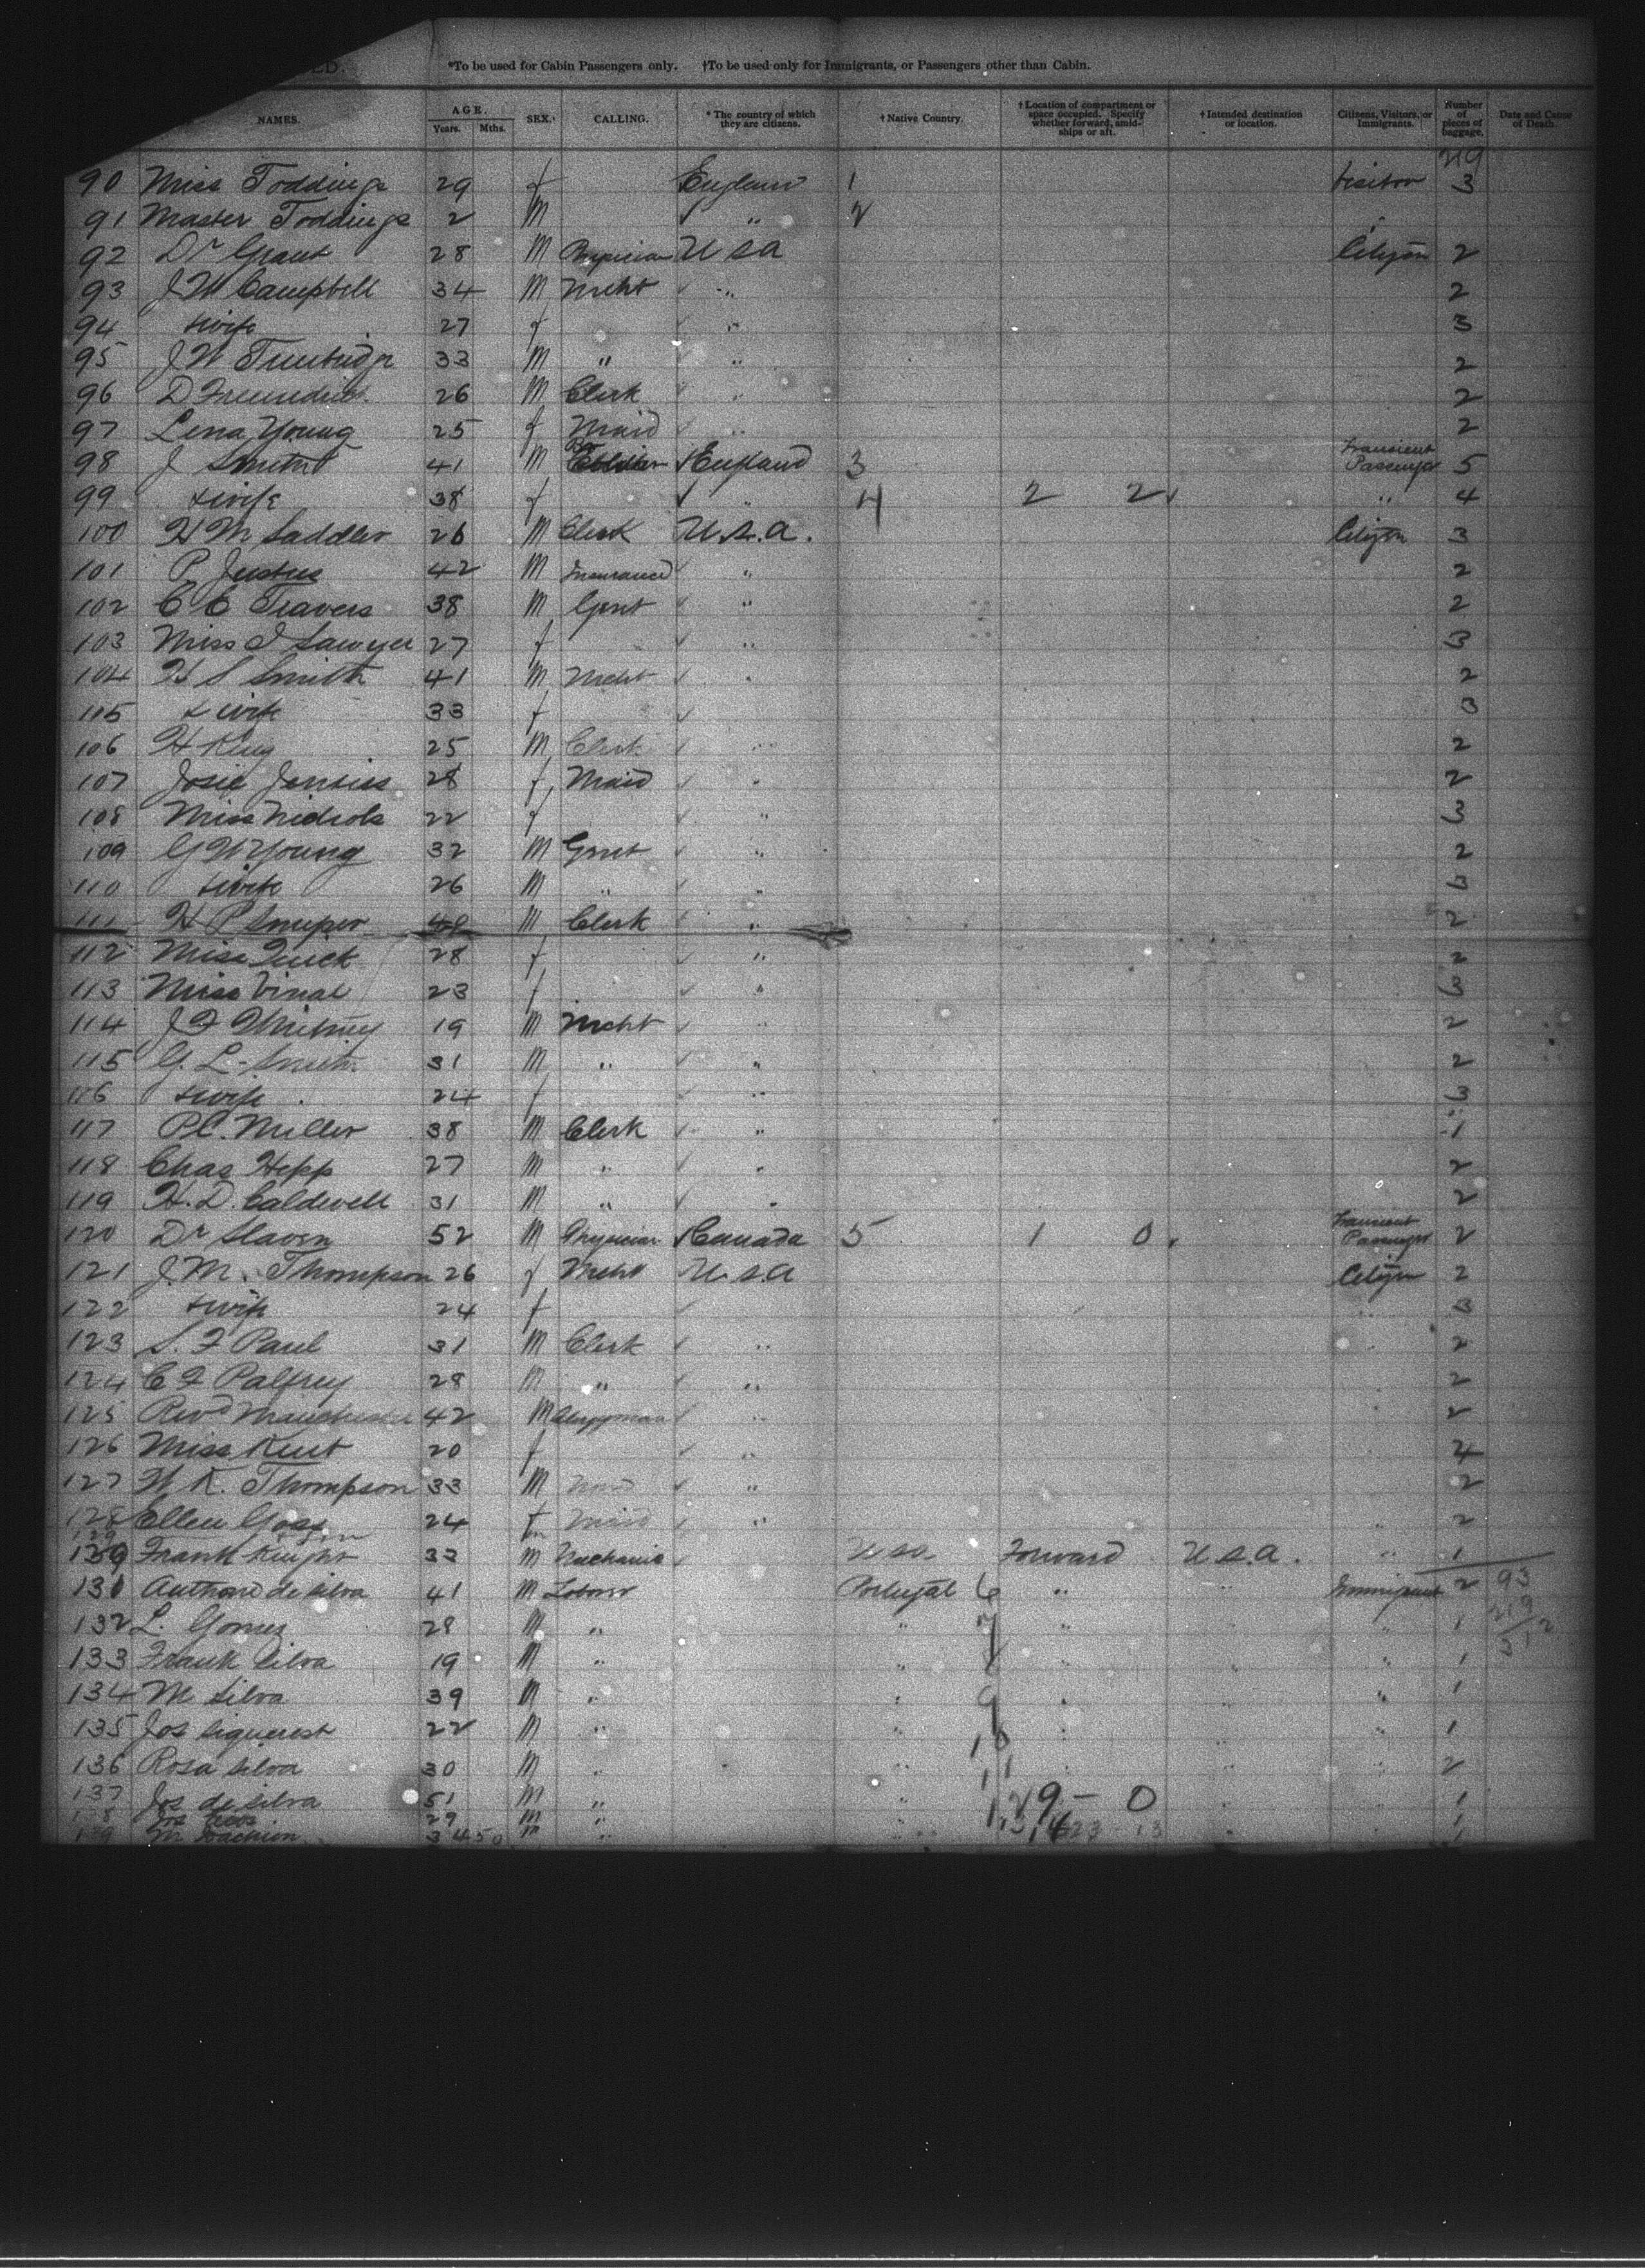 ED.
*To be used for Cabin Passengers only. †To be used only for Immigrants, or Passengers other than Cabin.
NAMES. AGE. Years. Mths. SEX. CALLING. *The country of which they are citizens. †Native Country. †Location of compartment or space occupied. Specify whether forward, amidships or aft. †Intended destination or location. Citizens, Visitors, or Immigrants. Number of pieces of baggage. Date and Cause of Death
219
90 Miss Toddings 29 f England 1 Visitor 3
91 Master Toddings 2 M ✓ " 2
92 Dr Grant 28 M Physician U S A Citizen 2
93 J W Campbell 34 M Mcht ✓ " 2
94 & wife 27 f ✓ " 3
95 J W 33 M " " 2
96 D 26 M Clerk ✓ " 2
97 Lena Young 25 f Maid ✓ " 2
98 J Smith 41 M ✓ England 3 Transient Passenger 5
99 & wife 38 f ✓ " 4 2 2 " 4
100 H M Saddler 26 M Clerk U.S.A. Citizen 3
101 P Justus 42 M Insurance ✓ " 2
102 C C Travers 38 M Gent ✓ " 2
103 Miss I Sawyer 27 f ✓ " 3
104 H S Smith 41 M Mcht ✓ " 2
105 & wife 33 f ✓ 3
106 H King 25 M Clerk ✓ " 2
107 Josie Jenkins 28 f Maid ✓ " 2
108 Miss Nichols 22 f ✓ " 3
109 G W Young 32 M Gent ✓ " 2
110 & wife 26 M " ✓ " 3
111 H P 48 M Clerk ✓ " 2
112 Miss Quick 28 f ✓ " 2
113 Miss Vinal 23 f ✓ " 3
114 J F Whitney 19 M Mcht ✓ " 2
115 G. L. Smith 31 M " ✓ " 2
116 & wife 24 f ✓ " 3
117 P.C. Miller 38 M Clerk ✓ " 1
118 Chas Hepp 27 M " ✓ " 2
119 H. D. Caldwell 31 M " ✓ " 2
120 Dr Slaven 52 M Physician ✓ Canada 5 1 0 Transient Passenger 2
121 J. M. Thompson 26 f Mcht U.S.A Citizen 2
122 & wife 24 f ✓ " 3
123 S. F Paul 31 M Clerk ✓ " 2
124 C F Palfrey 28 M " ✓ " 2
125 Revd Manchester 42 M Clergyman ✓ " 2
126 Miss Kent 20 f ✓ " 4
127 W K. Thompson 33 M ✓ " 2
128 Ellen Goss 24 f Maid ✓ " 2
129
130 Frank Knight 33 M Mechanic ✓ U S a Forward U.S.A. " 1
131 de Silva 41 M Laborer Portugal 6 " " Immigrant 2 93
132 L. Gomez 28 M " " 7 " " 1 219
133 Frank Silva 19 M " " 8 " " " 1 312
134 M Silva 39 M " " 9 " " 1
135 Jos 22 M " " 10 " " 1
136 Rosa Silva 30 M " " 11 " 2
137 Jos de Silva 51 M " 12 9 - 0 1
138 Jos 29 M " 13 1
139 M 34 M " 14 23 13 1